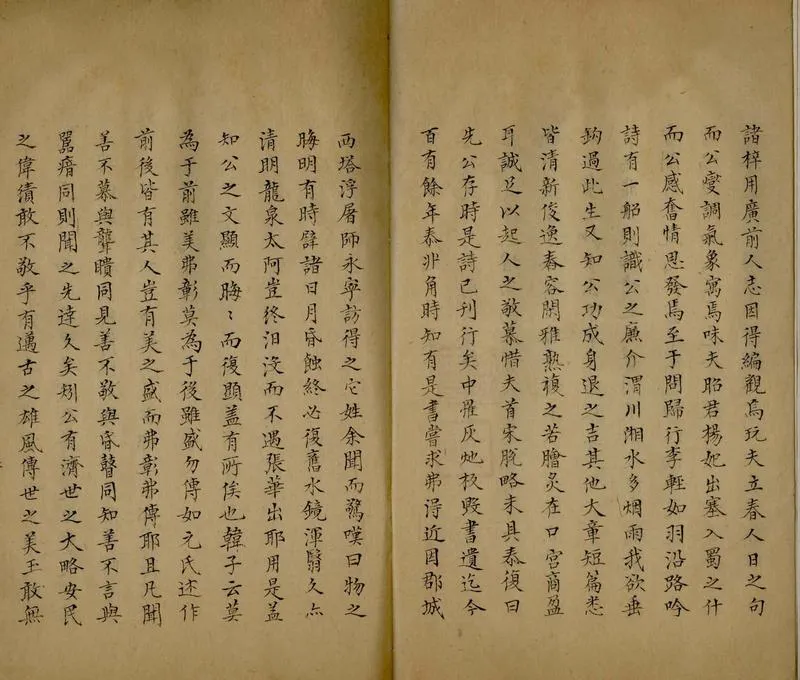 諸梓用廣前人志因得編觀焉玩夫立春人日之句
而公燮調氣象寓焉味夫昭君楊妃出塞入蜀之什
而公感奮情思發焉至于問歸行李輕如羽沿路吟
詩有一船則識公之廉介渭川湘水多烟雨我欲垂
鈎過此生又知公功成身退之吉其他大章短篇悉
皆清新俊逸舂容閑雅熟複之若膾炙在口宮商盈
耳誠足以起人之敬慕惜夫首宋脫略未具泰復曰
先公存時是詩已刊行矣中罹灰灺板毀書遺迄今
百有餘年泰丱角時知有是書嘗求弗淂近因郡城
西塔浮屠師永寧訪得之它姓余聞而驚嘆曰物之
晦明有時譬諸日月昏蝕終必復舊水鏡渾翳久亦
清明龍泉太阿豈終汨沒而不遇張華出耶用是盖
知公之文顯而晦〻而復顯盖有所俟也韓子云莫
為于前雖美弗彰莫為于後雖盛勿傳如元氏述作
前後皆有其人豈有美之盛而弗彰弗傳耶且凡聞
善不慕與聾聵同見善不敬與昏瞽同知善不言與
嚚瘖同則聞之先達久矣矧公有濟世之大略安民
之偉績敢不敬乎有邁古之雄風傳世之美玉敢無